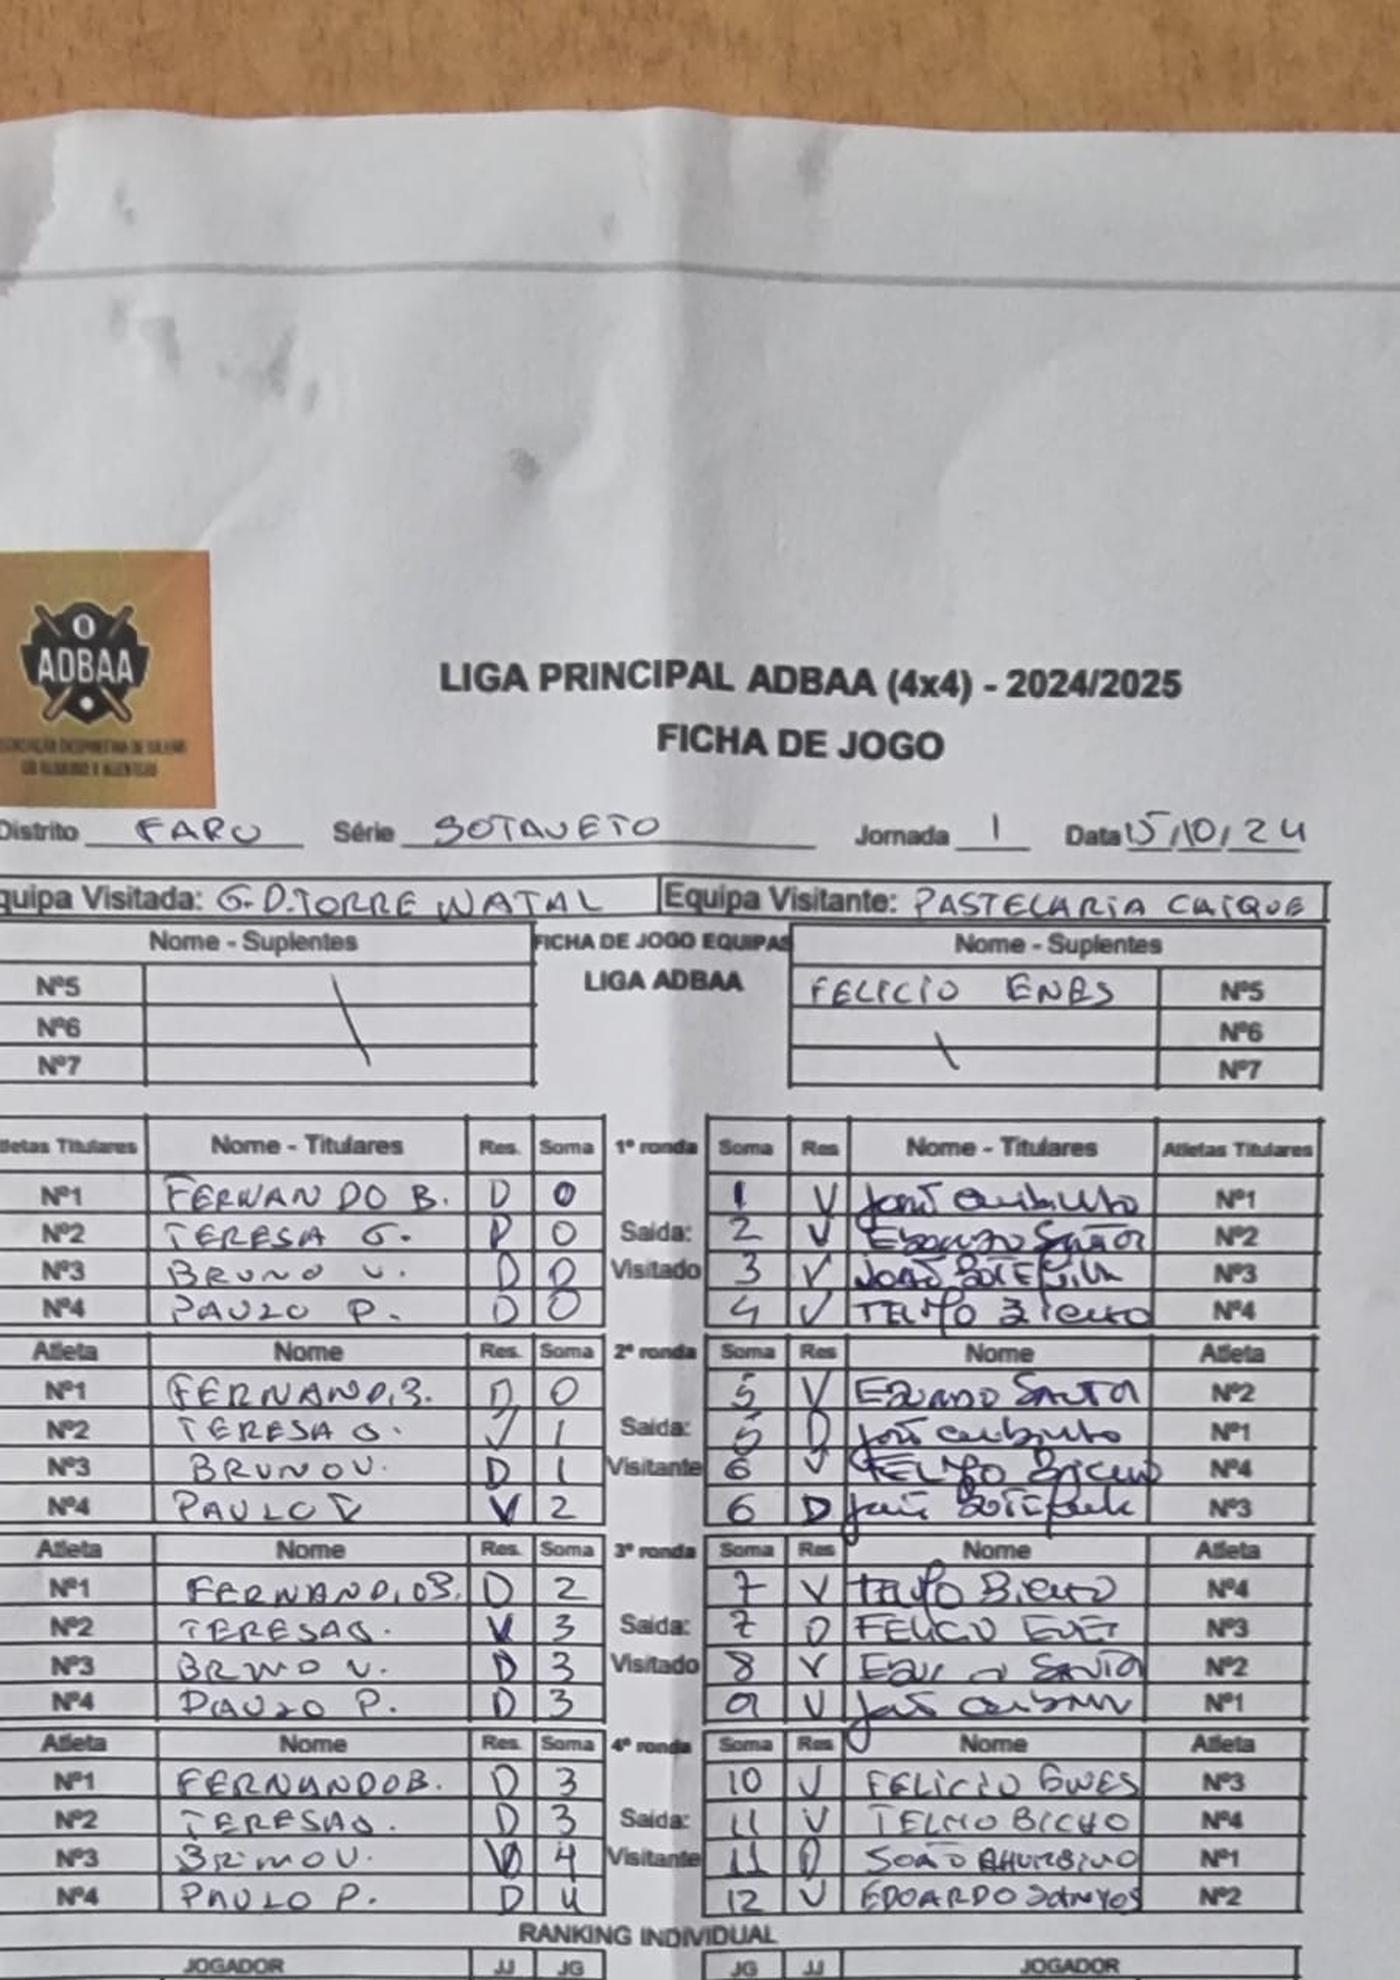 ADBAA
LIGA PRINCIPAL ADBAA (4x4) - 2024/2025
FICHA DE JOGO
Distrito FARO Série SOTAVETO Jornada 1 Data 15/10/24
quipa Visitada: G.D.TORRE NATAL Equipa Visitante: PASTELARIA CAIQUE
Nome - Suplentes FICHA DE JOGO EQUIPAS Nome - Suplentes
LIGA ADBAA
Nº5 FELICIO ENES Nº5
Nº6 Nº6
Nº7 Nº7
letas Titulares Nome - Titulares Res. Soma 1ª ronda Soma Res Nome - Titulares Atletas Titulares
Nº1 FERNANDO B. D 0 1 V João Nº1
Nº2 TERESA G. D 0 Saida: 2 V Nº2
Nº3 BRUNO V. D 0 Visitado 3 V JOÃO Nº3
Nº4 PAULO P. D 0 4 V TELMO Nº4
Atleta Nome Res. Soma 2ª ronda Soma Res Nome Atleta
Nº1 D 0 5 V Nº2
Nº2 TERESA G. V 1 Saida: 5 D João Nº1
Nº3 BRUNO V. D 1 Visitante 6 V TELMO Nº4
Nº4 PAULO P V 2 6 D João Nº3
Atleta Nome Res. Soma 3ª ronda Soma Res Nome Atleta
Nº1 D 2 7 V Telmo Nº4
Nº2 TERESA G. V 3 Saida: 7 D Nº3
Nº3 BRUNO V. D 3 Visitado 8 V Nº2
Nº4 PAULO P. D 3 9 V João Nº1
Atleta Nome Res. Soma 4ª ronda Soma Res Nome Atleta
Nº1 FERNANDO B. D 3 10 V FELICIO ENES Nº3
Nº2 TERESA G. D 3 Saida: 11 V TELMO BICHO Nº4
Nº3 BRUNO V. V 4 Visitante 11 D JOÃO Nº1
Nº4 PAULO P. D 4 12 V EDOARDO SANTOS Nº2
RANKING INDIVIDUAL
JOGADOR JJ JG JG JJ JOGADOR